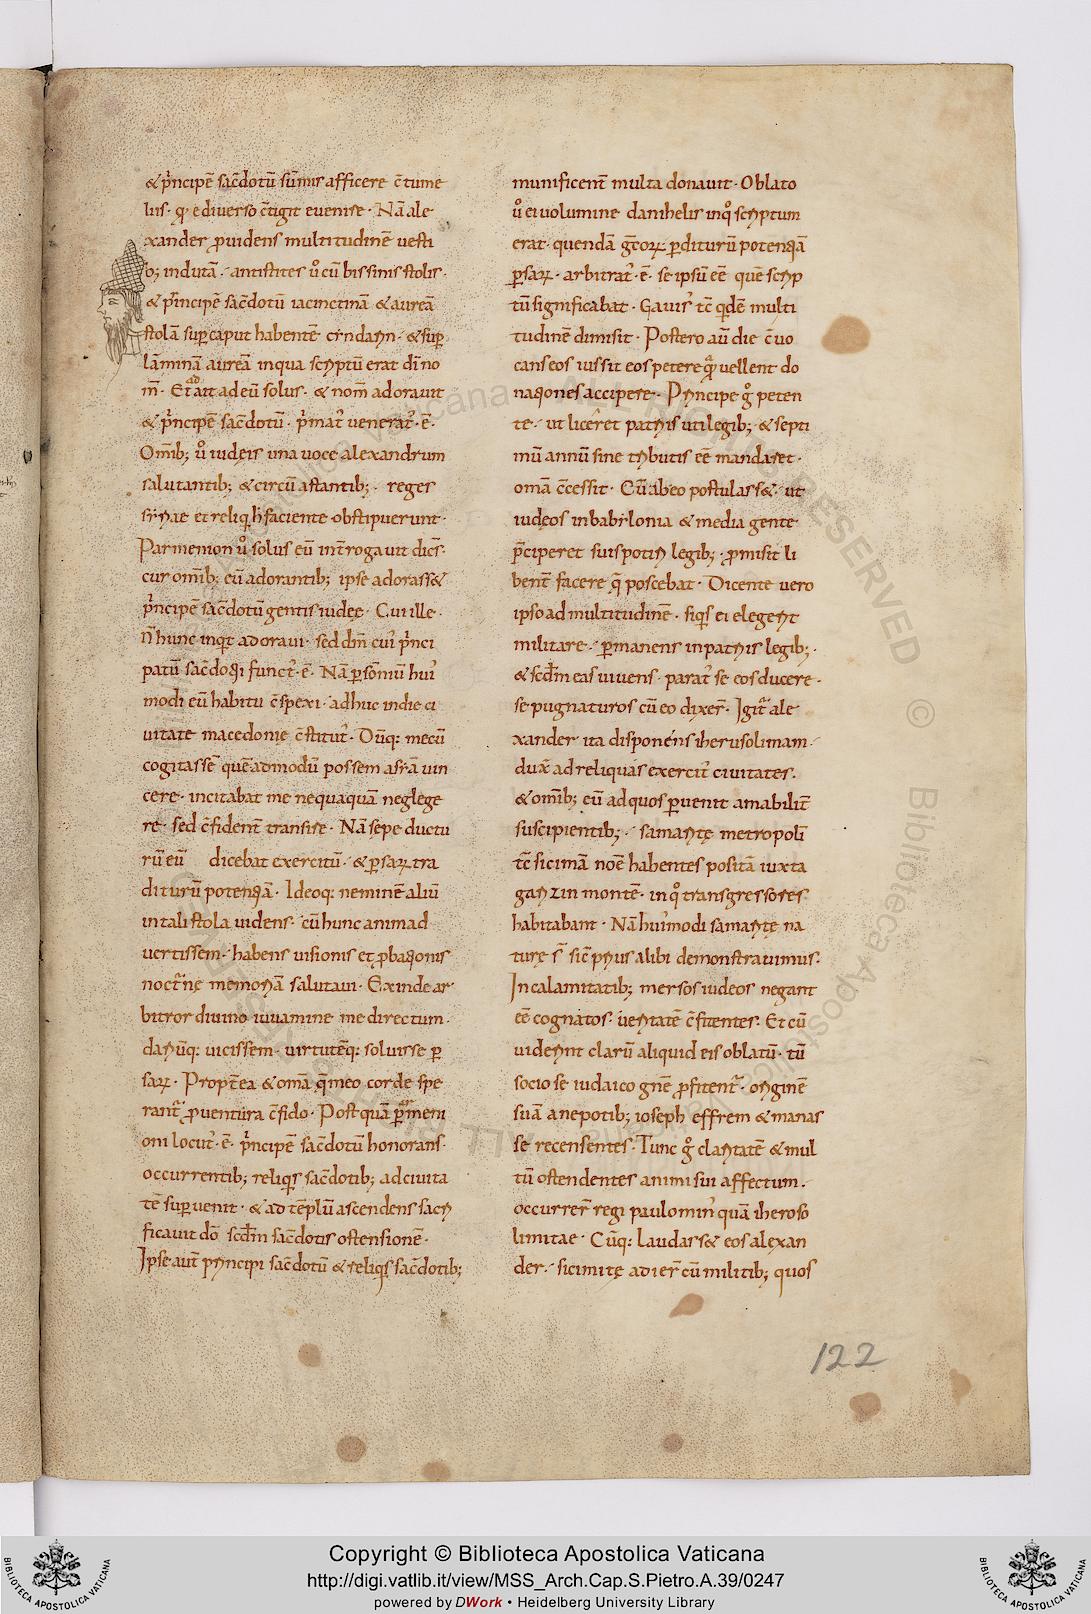 & p̃ncipẽ sac̃dotũ sũmis afficere c̃tume
liis· qđ e diverso c̃tigit evenire· Nã ale
xander p̱videns multitudinẽ uesti
b; indutã· antistites u̾ cũ bissinis stolis·
& p̃rincipẽ sac̃dotũ iacinctinã & aureã
stolã sup̱ caput habentẽ cyndarin· & sup̱
lãminã aureã inqua scriptũ erat di͂ no
m̃· Et adiit ad eũ solus· & nom̃ adorauit
& p̃ncipẽ sac̃dotũ· p̃mat᾽ venerat᾽· ẽ·
Om̃ib; u̾ iudęis una uoce alexandrum
salutantib; & circũ astantib;· reges
syriae et reliq̃ h̃ faciente obstipuerunt·
Parmenion u̾ solus eũ int̃rogauit dic̃s·
cur om̃ib; eũ adorantib; ipse adorass&
p̃ncipẽ sac̃dotũ gentis iudęę· Cui ille·
ñ hunc inqt adoraui· sed dm̃ cui᾽ p̃nci
patũ sac̃dotii funct᾽· ẽ· Nã p̱ sõniũ hui᾽
modi eũ habitu c̃spexi· adhuc in die ci
uitate macedonie c̃stitut᾽· Dũq: mecũ
cogitassẽ quẽadmodũ possem asiã uin
cere· incitabat me nequaquã neglege
re· sed c̃fident̃ transire· Nã sepe ductu
rũ eũ dicebat exercitũ· & p̱saꝝ tra
diturũ potentiã· Ideoq: neminẽ aliũ
in tali stola uidens· cũ hunc animad
uertissem· habens uisionis et p̱bationis
noct̃ne memoriã salutaui· Exinde ar
bitror diuino iuuamine me directum·
dariũq: uicissem· uirtutẽq: soluisse p̱
saꝝ· Propt̃ea & omã q̃ meo corde spe
rant̃ p̱ventura c̃fido· Post quã p̱meni
oni locut᾽· ẽ· p̃ncipẽ sac̃dotũ honorans·
occurrentib; reliqs sac̃dotib; ad ciuita
tẽ sup̱uenit· & ad tẽplũ ascendens sacri
ficauit dõ sc̃dm sac̃dotis ostensionẽ·
Ipse aut̃ principi sac̃dotũ & reliqs sac̃dotib;
munificent̃ multa donauit· Oblato
u̾ ei uolumine danihelis in qo scriptum
erat· quendã g̃coꝝ p̱diturũ potentiã
p̱saꝝ· arbitrat᾽· ẽ· se ipsũ eẽ quẽ scrip
tũ significabat· Gauis᾽ tc̃ qdẽ multi
tudinẽ dimisit· Postero aũ die c̃uo
cans eos iussit eos petere q̃ uellent do
nationes accipere· Principe g̊ peten
te· ut liceret patriis uti legib; & septi
mũ annũ sine tributis eẽ mandaret·
omã c̃cessit· Cũ ab eo postulass& ut
iudęos in babilonia & media gente
p̃ciperet suis potiri legib; p̱misit li
bent̃ facere q̃ poscebat· Dicente uero
ipso ad multitudinẽ· siqs ei elegerit
militare· p̱manens in patriis legib;·
& sc̃dm eas uiuens· parat᾽ se eos ducere·
se pugnaturos cũ eo dixer̃· Igit̃ ale
xander ita disponens iherusolimam·
duxit ad reliquas exercit̃ ciuitates·
& om̃ib; eũ ad quos p̱uenit amabilit̃
suscipientib;· samaritę metropolĩ
tc̃ sicimã noẽ habentes positã iuxta
garizin montẽ· in qo transgressores
habitabant· Nã hui᾽modi samaritę na
turę s̃ sic̃ prius alibi demonstrauimus·
In calamitatib; mersos iudeos negant
eẽ cognatos· ueritatẽ c̃fitentes· Et cũ
uiderint clarũ aliquid eis oblatũ· tũ
socio se iudaico gñe p̱fitent̃· originẽ
suã a nepotib; ioseph effrem & manas
se recensentes· Tunc g̊ claritatẽ & mul
tũ ostendentes animi sui affectum·
occurrer̃ regi paulo min᾽ quã iheroso
limitae· Cũq: laudass& eos alexan
der· sicimitę adier̃ cũ militib; quos
122
Copyright © Biblioteca Apostolica Vaticana
http://digi.vatlib.it/view/MSS_Arch.Cap.S.Pietro.A.39/0247
powered by DWork • Heidelberg University Library